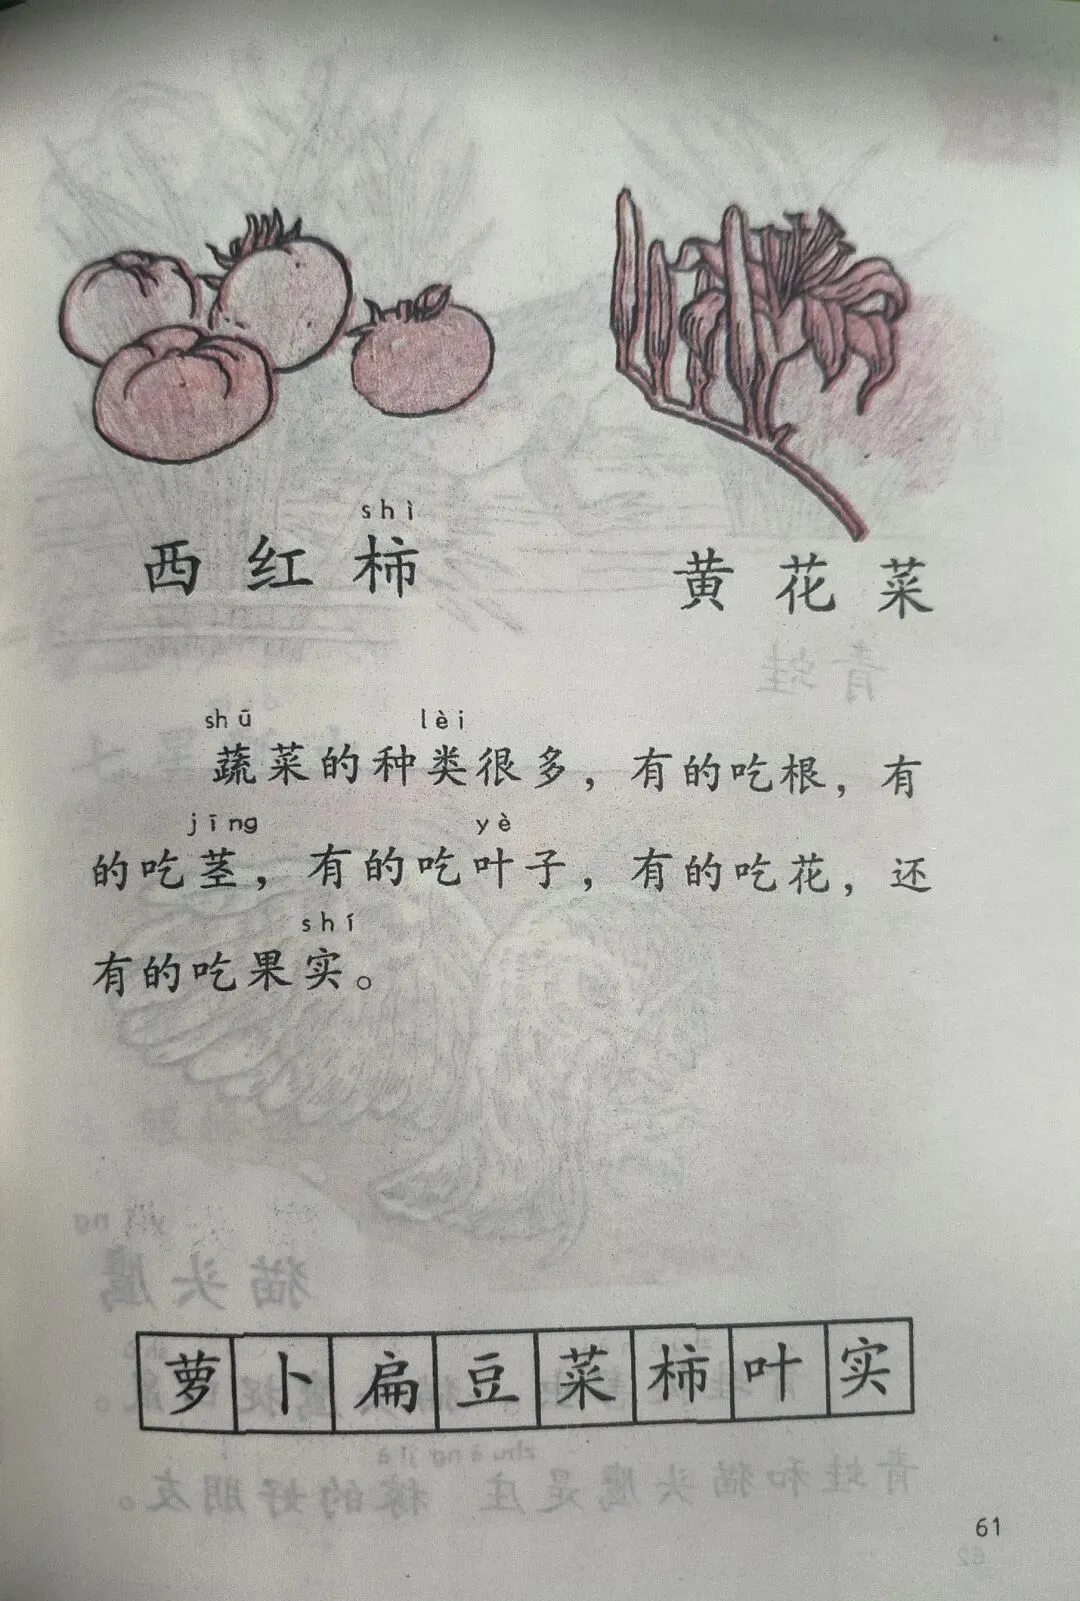 shì
西红柿
黄花菜
shū lèi
蔬菜的种类很多，有的吃根，有
jīng yè
的吃茎，有的吃叶子，有的吃花，还
shí
有的吃果实。
萝卜扁豆菜柿叶实
61